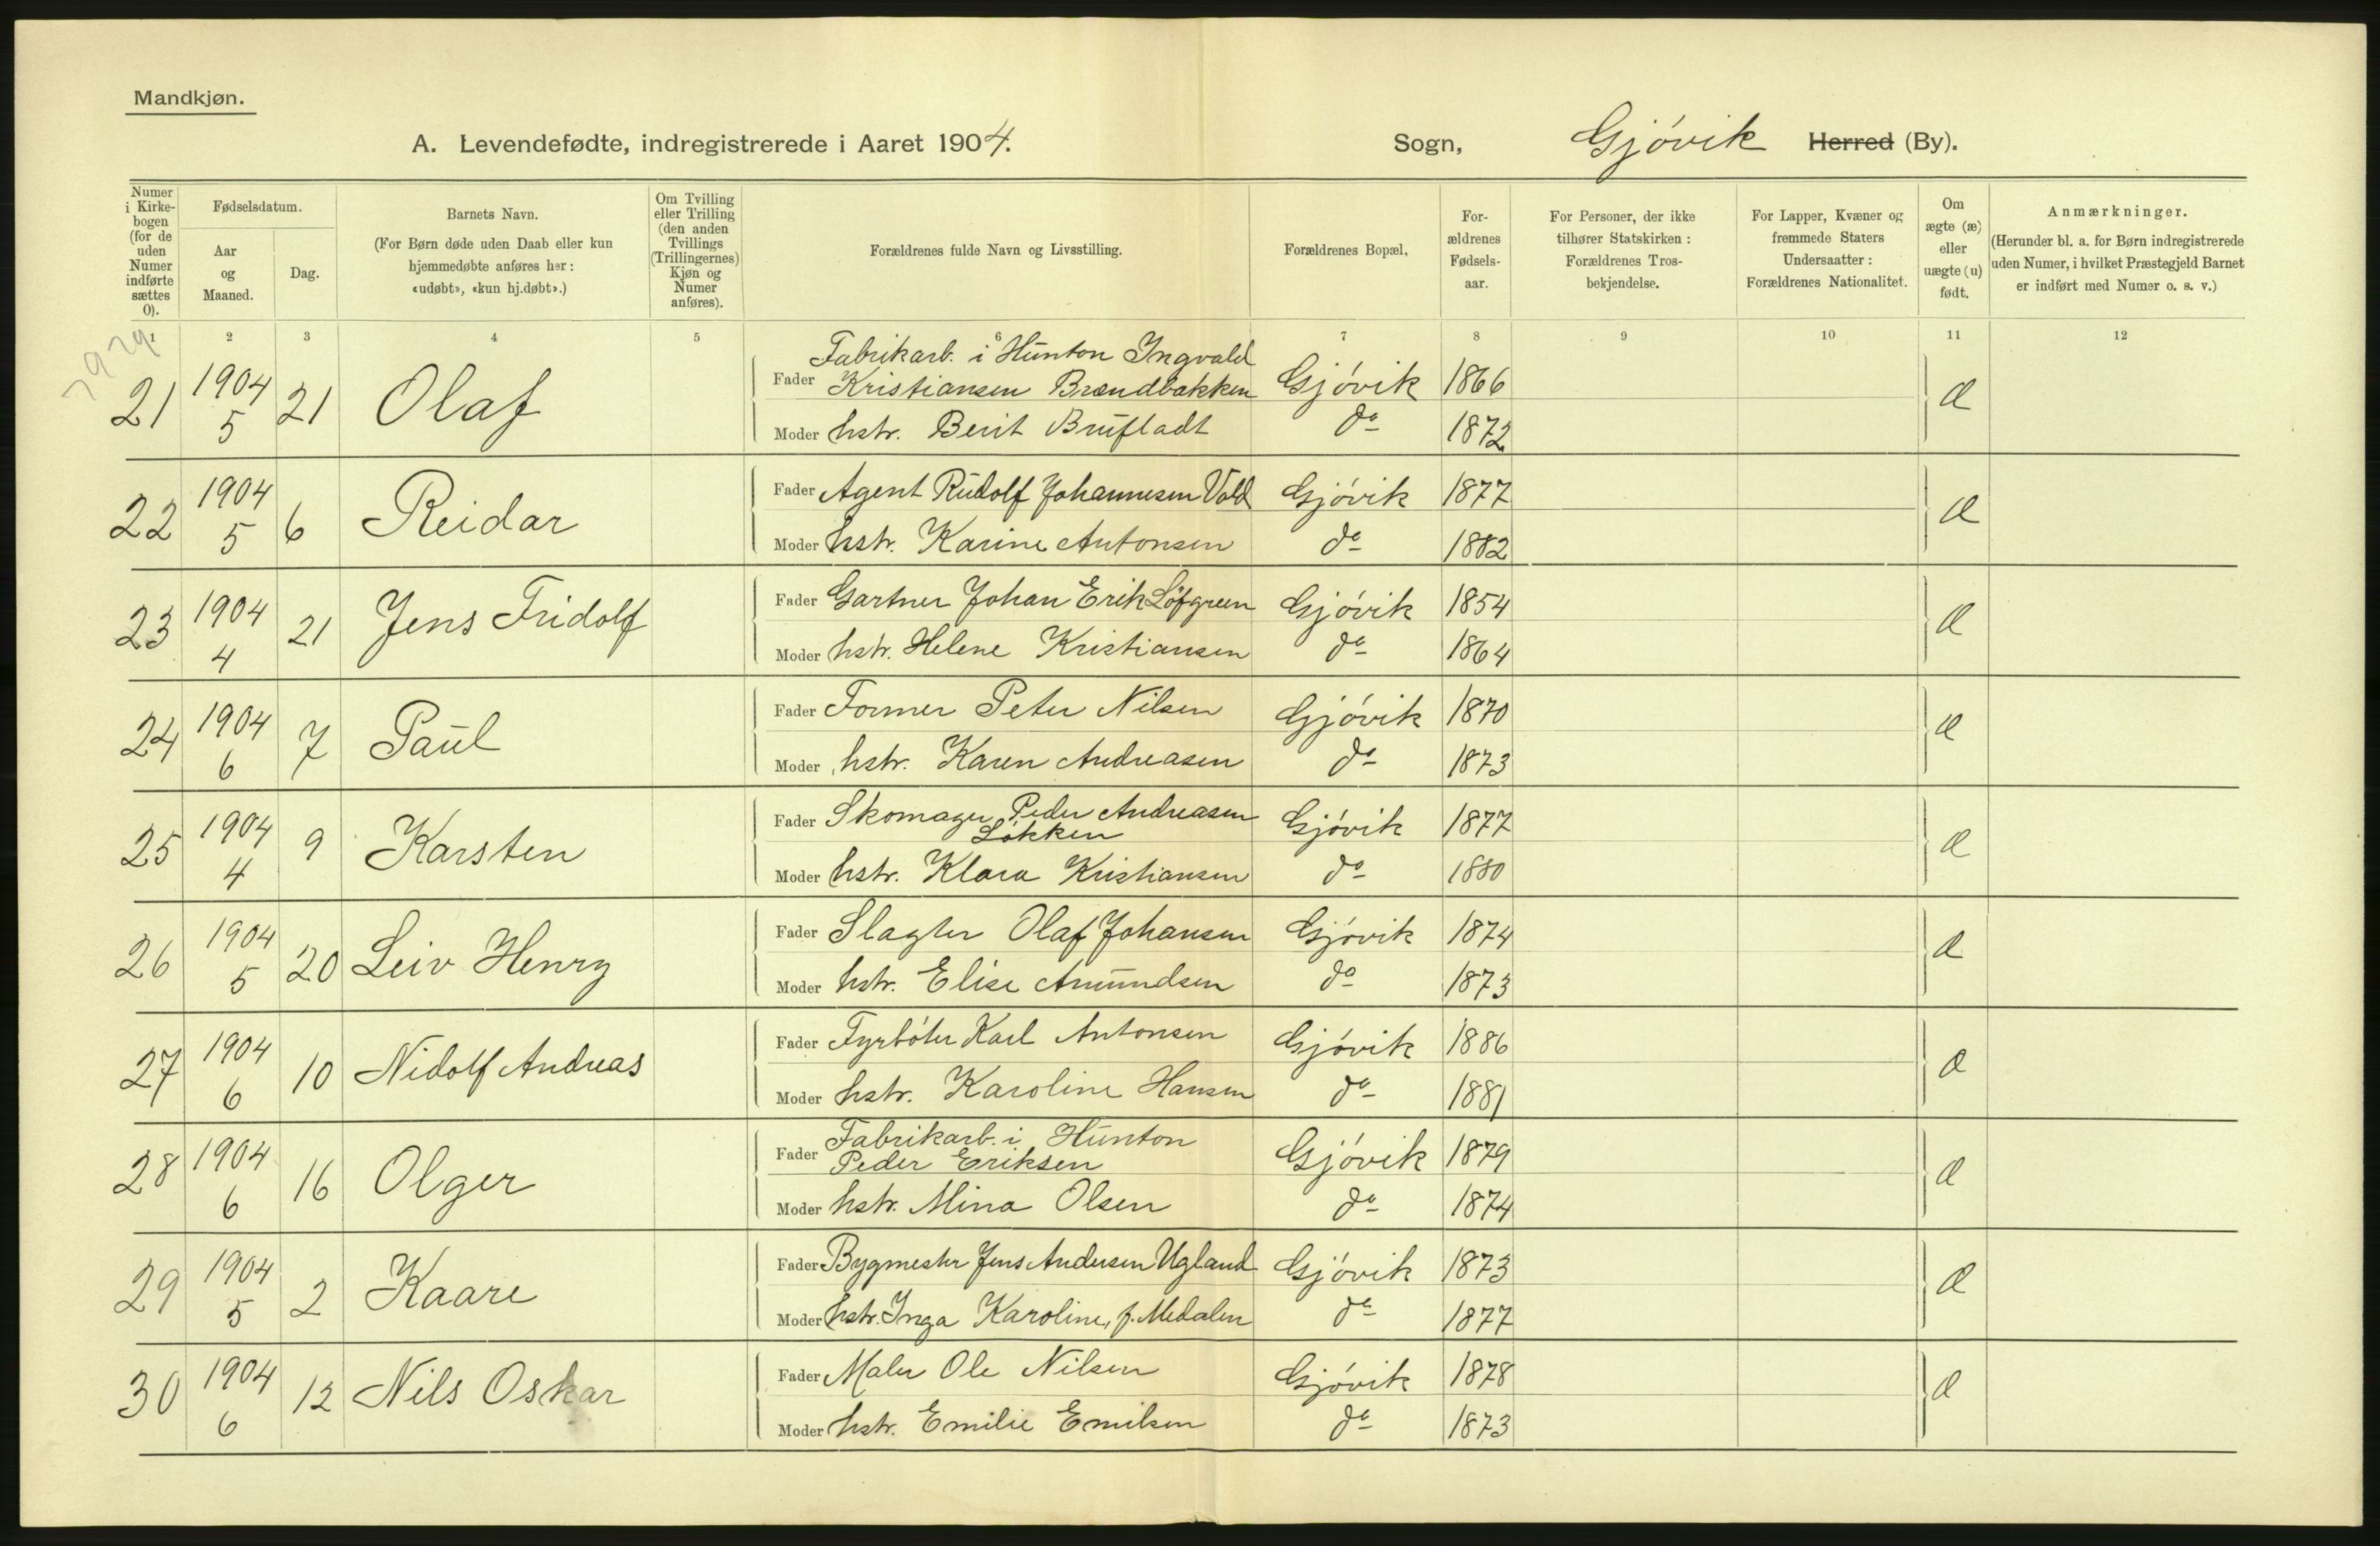 Mandkjøn.
A. Levendefødte, indregistrerede i Aaret 1904. Sogn, Gjövik Herred (By).
Numer i Kirkebogen (for de uden Numer indførte sættes 0).
Fødselsdatum.
Aar og Maaned.
Dag.
Barnets Navn.
(For Børn døde uden Daab eller kun hjemmedøbte anføres her: «udøbt», «kun hj.døbt».)
Om Tvilling eller Trilling (den anden Tvillings (Trillingernes) Kjøn og Numer anføres).
Forældrenes fulde Navn og Livsstilling.
Forældrenes Bopæl,
Forældrenes Fødselsaar.
For Personer, der ikke tilhører Statskirken: Forældrenes Trosbekjendelse.
For Lapper, Kvæner og fremmede Staters Undersaatter: Forældrenes Nationalitet.
Om ægte (æ) eller uægte (u) født.
Anmærkninger.
(Herunder bl. a. for Børn indregistrerede uden Numer, i hvilket Præstegjeld Barnet er indført med Numer o. s. v.)
1 2 3 4 5 6 7 8 9 10 11 12
21 1904 5 21 Olaf
Fader Fabrikarb. i Hunton Ingvald
Kristiansen Brændbakken Gjövik 1866 æ
Moder hstr. Berit Brufladt do 1872
22 1904 5 6 Reidar
Fader Agent Rudolf Johannesen Vold Gjövik 1877 æ
Moder hstr. Karine Antonsen do 1882
23 1904 4 21 Jens Fridolf
Fader Gartner Johan Erik Löfgreen Gjövik 1854 æ
Moder hstr. Helene Kristiansen do 1864
24 1904 6 7 Paul
Fader Former Peter Nilsen Gjövik 1870 æ
Moder hstr. Karen Andreasen do 1873
25 1904 4 9 Karsten
Fader Skomager Peder Andreasen
Lökken Gjövik 1877 æ
Moder hstr. Klara Kristiansen do 1880
26 1904 5 20 Leiv Henry
Fader Slagter Olaf Johansen Gjövik 1874 æ
Moder hstr. Elise Amundsen do 1873
27 1904 6 10 Nidolf Andreas
Fader Fyrböter Karl Antonsen Gjövik 1886 æ
Moder hstr. Karoline Hansen do 1881
28 1904 6 16 Olger
Fader Fabrikarb. i Hunton
Peder Eriksen Gjövik 1879 æ
Moder hstr. Mina Olsen do 1874
29 1904 5 2 Kaare
Fader Bygmester Jens Andersen Ugland Gjövik 1873 æ
Moder hstr. Inga Karoline, f. Medalen do 1877
30 1904 6 12 Nils Oskar
Fader Maler Ole Nilsen Gjövik 1878 æ
Moder hstr. Emilie Emilsen do 1873